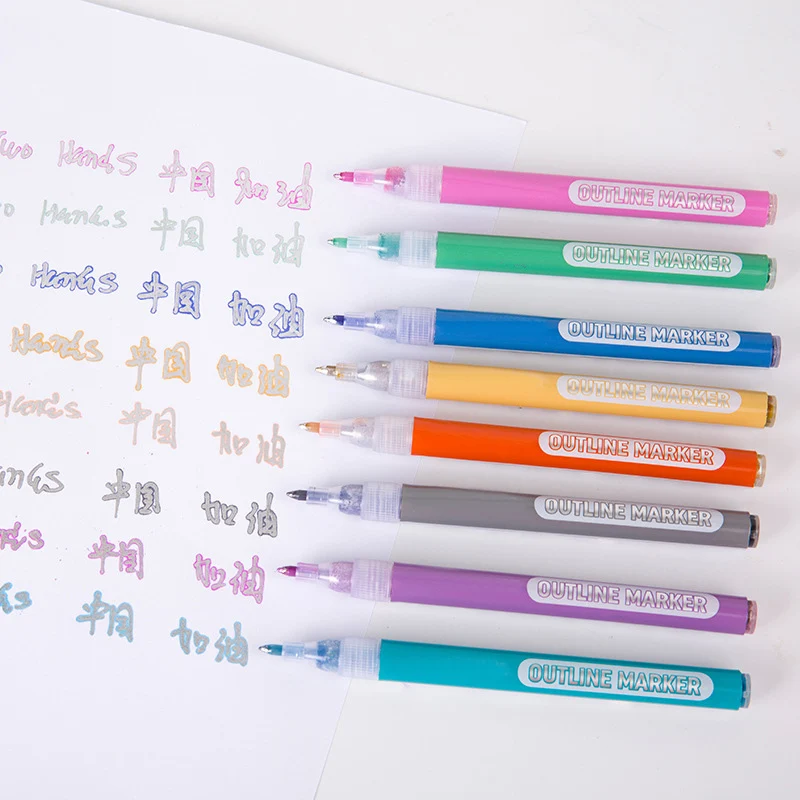 Two Hands 中国 加油 OUTLINE MARKER
Two Hands 中国 加油 OUTLINE MARKER
Hands 中国 加油 OUTLINE MARKER
Hands 中国 加油 OUTLINE MARKER
Hands 中国 加油 OUTLINE MARKER
Hands 中国 加油 OUTLINE MARKER
Hands 中国 加油 OUTLINE MARKER
中国 加油 OUTLINE MARKER